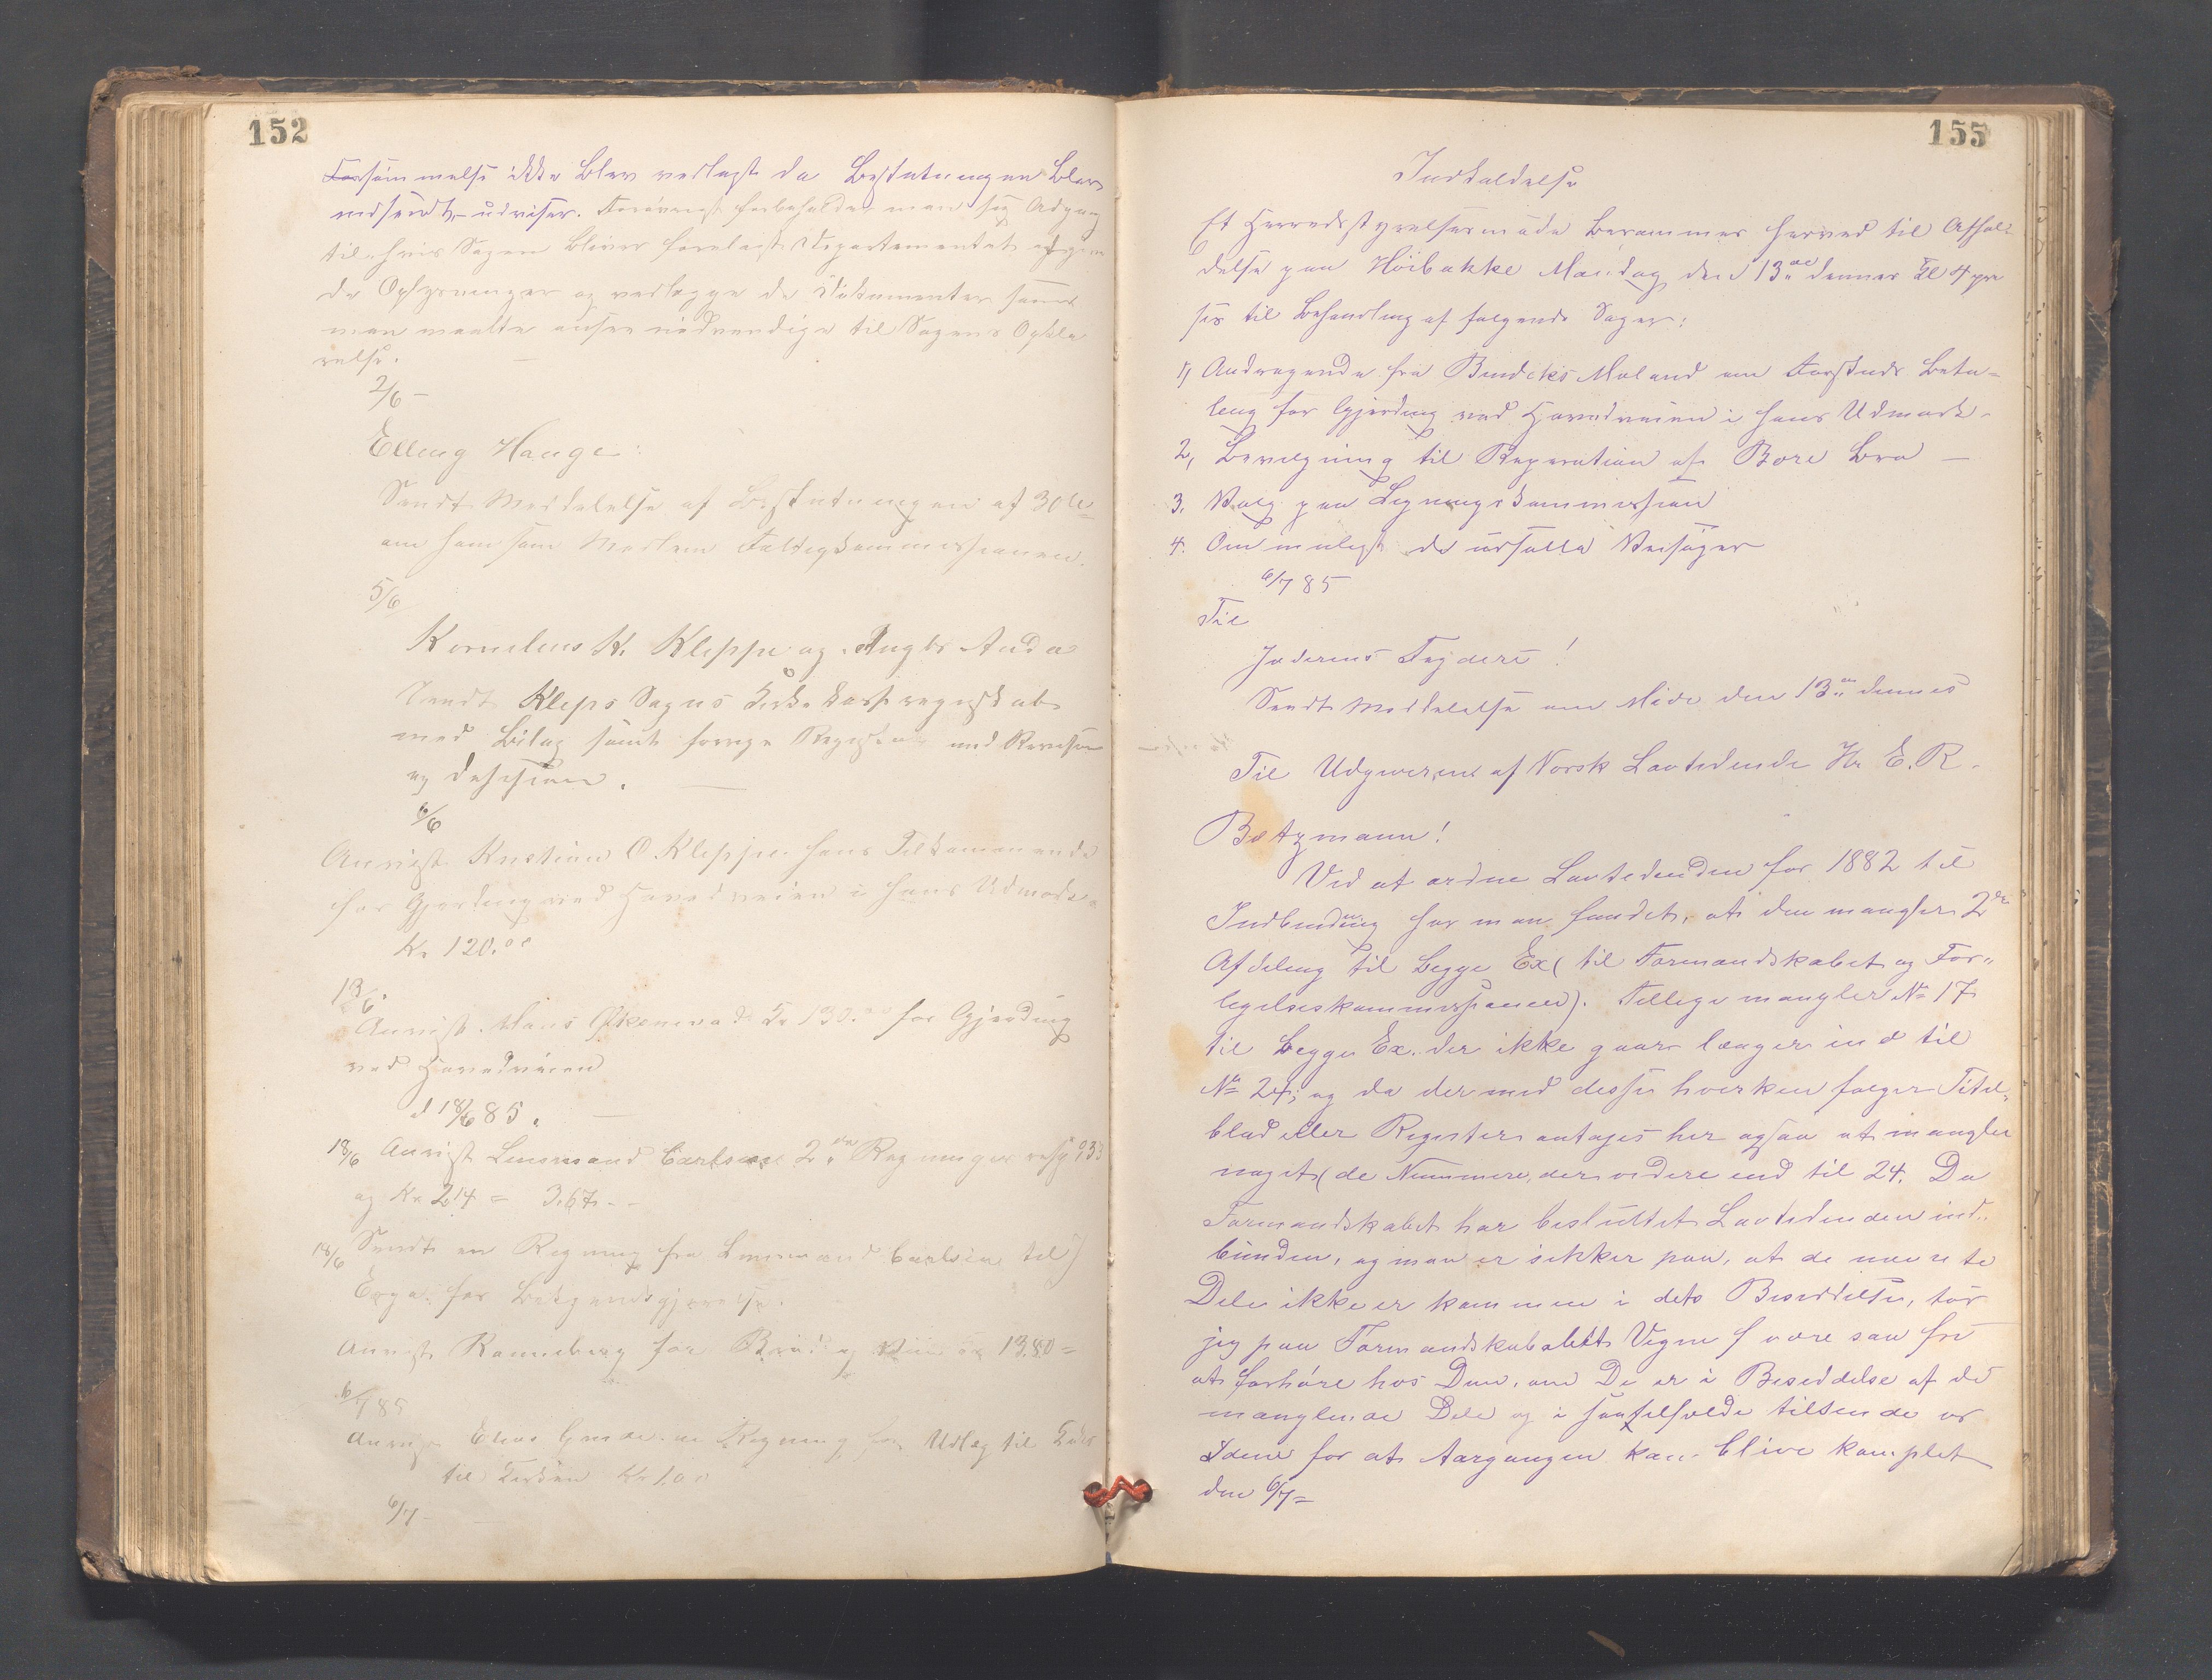 152
Forsømmelse ikke blev vedlagt da Beslutningen blev
indsendt, udviser. Forøvrigt forbeholder man sig Adgang
til, hvis Sagen bliver forelagt Departementet at gi
de Oplysninger og vedlægge de Dokumenter som
man maatte ansee nødvendige til Sagens Opkla
relse.
2/6 –
Elling Hauge:
Sendt Meddelelse af Beslutningen af 30te
om ham som Medlem Fattigkommissionen.
5/6
Kornelius K. Kleppe og Aude
Sendt Kleps Sogns Kirkekasseregnskab
med Bilag samt forrige Regnskab med Revision
og Desision.
6/6
Anvist Kristian O. Kleppe hans Tilkommende
for Gjerding ved Hovedveien i hans Udmark
Kr 120.00
13/6
Anvist Hans Kr 130.00 for Gjerding
ved Hovedveien
d 18/6 85.
18/6 Anvist Lensmand Carlsen 2 Regninger
og Kr 214 = 3.67 –
18/6 Sendt en Regning fra Lensmand Carlsen til
for Bekjendtgjørelse.
Anvist Ranneberg for 13.80 =
6/7 85
Anvist Regning for Udlæg til
til Kirken Kr 1.00
6/7 –
155
Indkaldelse
Et Herredsstyrelsesmøde berammes herved til Afhol-
delse paa Høibakke Mandag den 13de dennes Kl 4 præ
sis til Behandling af følgende Sager:
1, Andragende fra Moland om Forskuds Beta-
ling for Gjerding ved Hovedveien i hans Udmark –
2, Bevilgning til Reperation af Bore Bro –
3. Valg paa Ligningskommission
4. Om muligt de Veisager
6/7 85
Til
Jæderens Fogderi!
Sendt Meddelelse om Møde den 13de dennes
Til Udgiveren af Norsk Lovtidende Hr E. R.
Bætzmann!
Ved at ordne Lovtidenden for 1882 til
Indbinding har man fundet, at den mangler 2den
Afdeling til begge Ex (til Formandskabet og For-
legelseskommissionen). Tillige mangler No 17
til begge Ex. der ikke gaar længer ind til
No 24; og da der med disse hverken følger Titel-
blad eller Register antages her ogsaa at mangler
noget (de Nummere, der videre end til 24. Da
Formandskabet har besluttet Lovtidenden ind-
bunden, og man er sikker paa, at de nævnte
Dele ikke er kommen i dets Besiddelse, tør
jeg paa Formandskabets Vegne være saa fri
at forhøre hos Dem, om De er i Besiddelse af de
manglende Dele og i saafald tilsende os
Idem for at Aargangen kan blive komplet
den 6/7 =